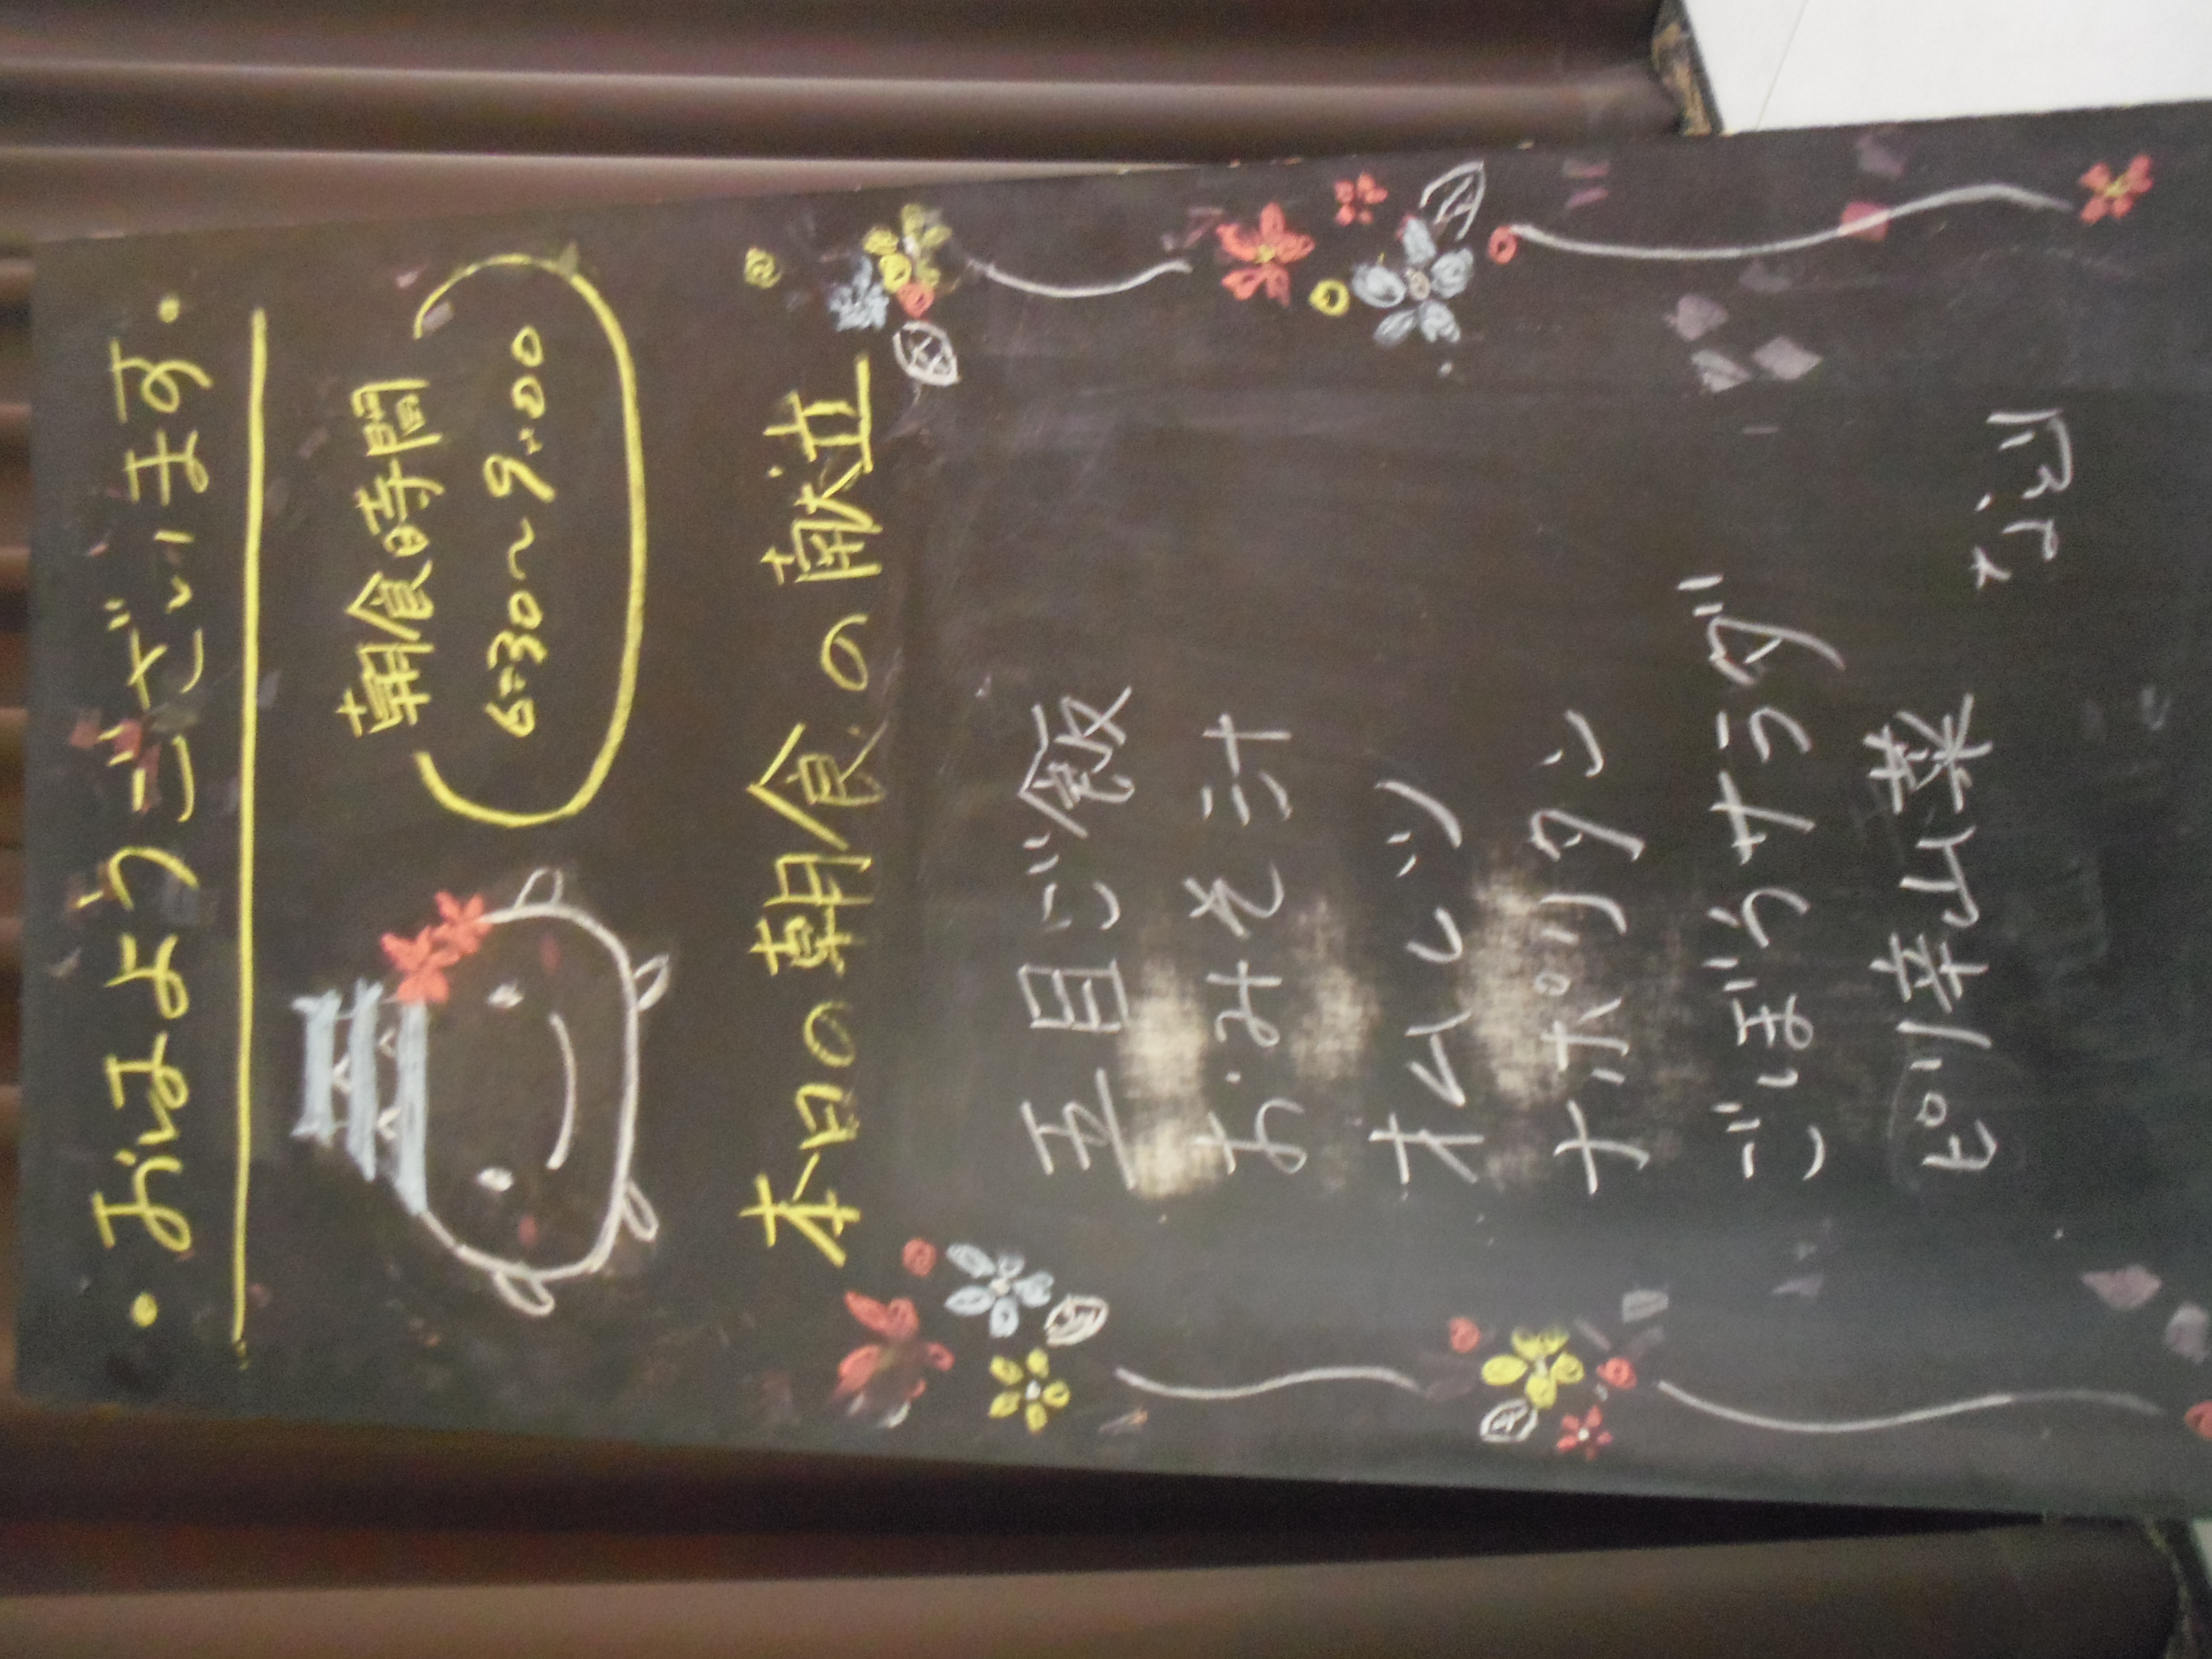 ・おはようございます・
朝食時間
6:30～9:00
本日の朝食の献立
五目ご飯
おみそ汁
オムレツ
ナポリタン
ごぼうサラダ
ピリ辛山菜
など